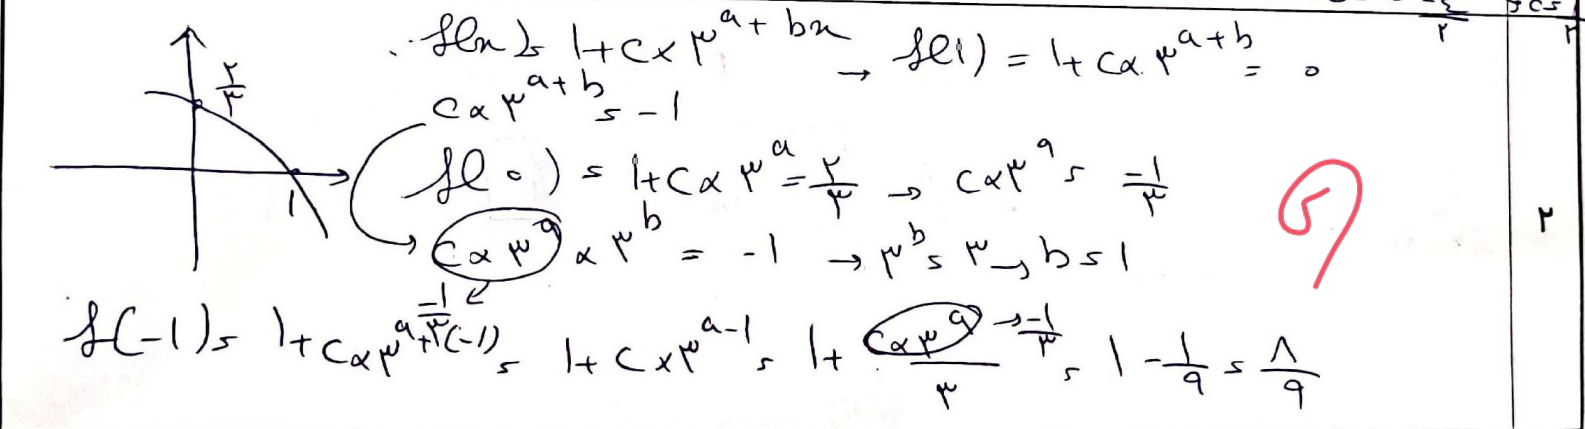 f(x) = 1 + c × ۳^(a + bx) → f(1) = 1 + c × ۳^(a+b) = ۰
c × ۳^(a+b) = -1
۲/۳
f(۰) = 1 + c × ۳^a = ۲/۳ → c × ۳^a = -1/۳
1
c × ۳^a × ۳^b = -1 → ۳^b = ۳ → b = 1
۲
-1/۳
f(-1) = 1 + c × ۳^(a+1(-1)) = 1 + c × ۳^(a-1) = 1 + (c × ۳^a)/۳ → -1/۳ = 1 - 1/۹ = ۸/۹